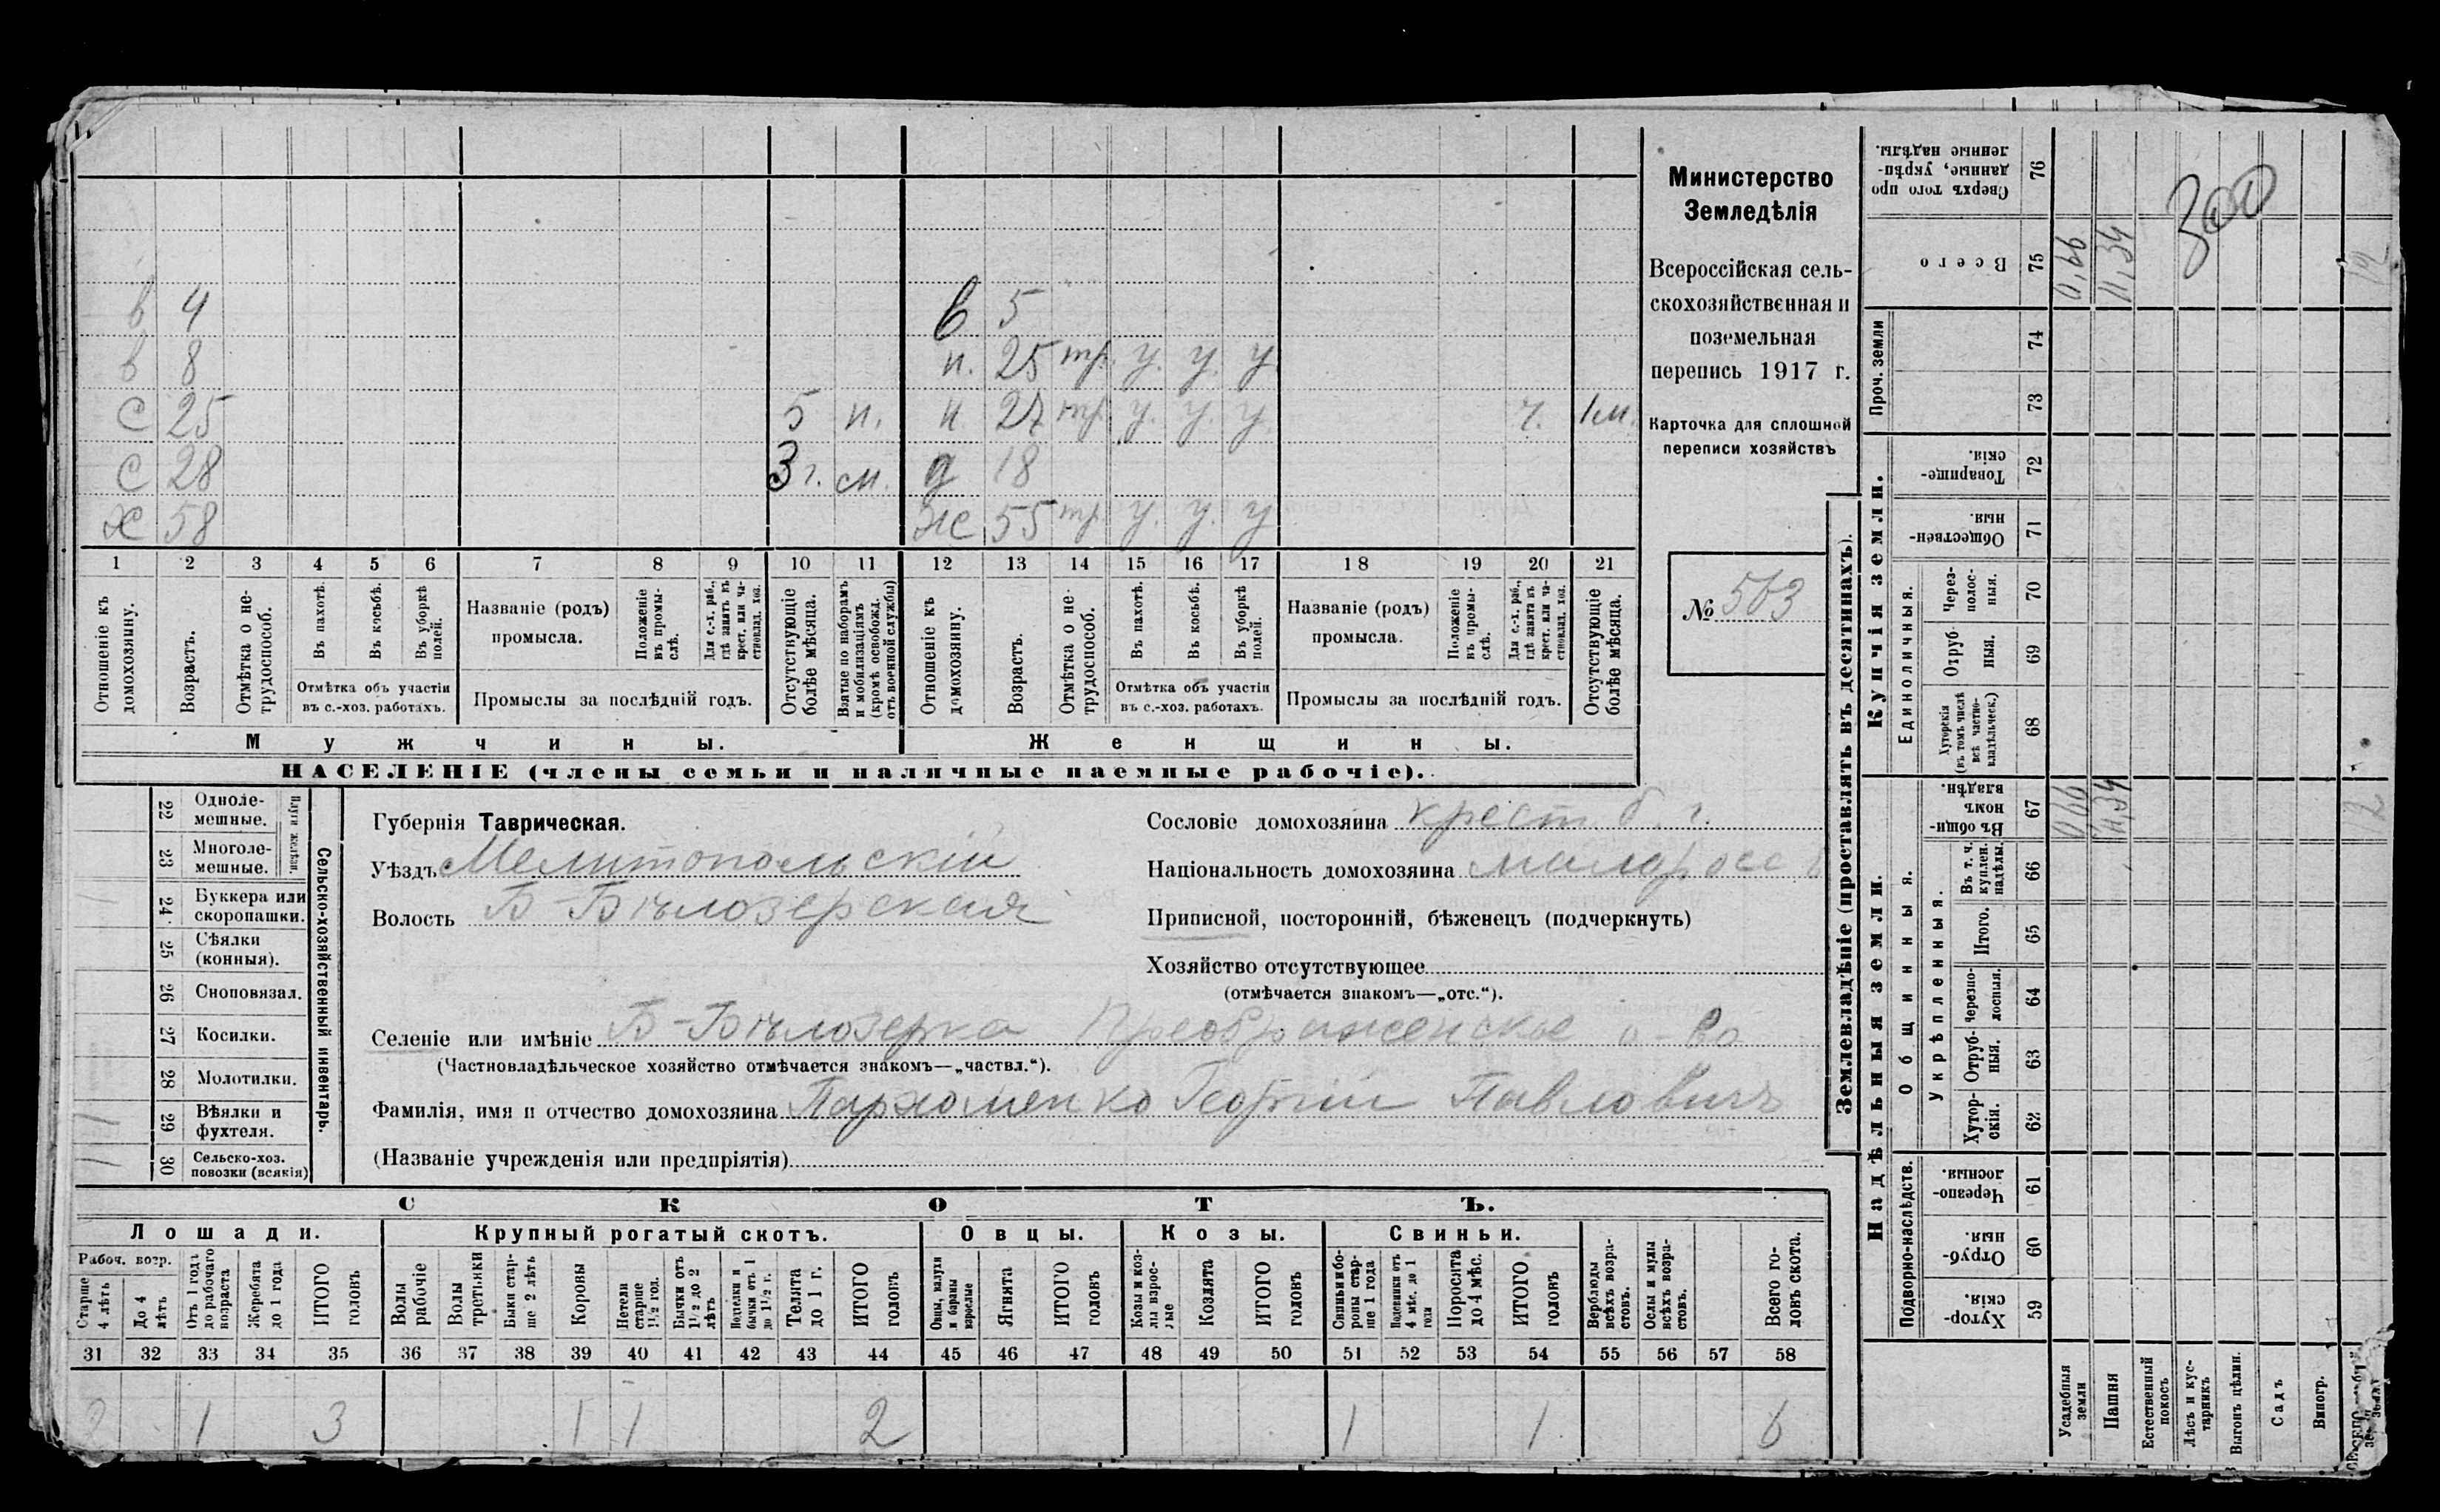 в 4 в 5
в 8 н. 25 тр. у. у. у
с 25 5 п. н 27 тр. у. у. у. ч. 1м.
с 28 3 г. м. д 18
х 58 ж 55 тр у. у. у
1 2 3 4 5 6 7 8 9 10 11 12 13 14 15 16 17 18 19 20 21
Отношеніе къ домохозяину.
Возрастъ.
Отмѣтка о не-
трудоспособ.
Въ пахотѣ.
Въ косьбѣ.
Въ уборкѣ
полей.
Отмѣтка объ участіи
въ с.-хоз. работахъ.
Названіе (родъ)
промысла.
Положеніе
въ промы-
слѣ.
Для с.-х. раб.,
гдѣ занятъ въ
крест. или ча-
стновлад. хоз.
Промыслы за послѣдній годъ.
Отсутствующіе
болѣе мѣсяца.
Взятые по наборамъ
и мобилизаціямъ
(кромѣ освобожд.
отъ военной службы)
Отношеніе къ
домохозяину.
Возрастъ.
Отмѣтка о не-
трудоспособ.
Въ пахотѣ.
Въ косьбѣ.
Въ уборкѣ
полей.
Отмѣтка объ участіи
въ с.-хоз. работахъ.
Названіе (родъ)
промысла.
Положеніе
въ промы-
слѣ.
Для с.-х. раб.,
гдѣ занята въ
крест. или ча-
стновлад. хоз.
Промыслы за послѣдній годъ.
Отсутствующіе
болѣе мѣсяца.
Мужчины.
Женщины.
НАСЕЛЕНІЕ (члены семьи и наличные наемные рабочіе).
Министерство
Земледѣлія
Всероссійская сель-
скохозяйственная и
поземельная
перепись 1917 г.
Карточка для сплошной
переписи хозяйствъ
№ 503
22 Одноле-
мешные.
23 Многоле-
мешные.
Плуги желѣзн.
24 Буккера или
скоропашки.
25 Сѣялки
(конныя).
26 Сноповязал.
27 Косилки.
28 Молотилки.
29 Вѣялки и
фухтеля.
30 Сельско-хоз.
повозки (всякія)
Сельско-хозяйственный инвентарь.
Губернія Таврическая.
Уѣздъ Мелитопольскій
Волость Б-Бѣлозерская
Сословіе домохозяина крест. б. г.
Національность домохозяина малоросс
Приписной, посторонній, бѣженецъ (подчеркнуть)
Хозяйство отсутствующее
(отмѣчается знакомъ—„отс.“).
Селеніе или имѣніе Б-Бѣлозерка Преображенское о-во
(Частновладѣльческое хозяйство отмѣчается знакомъ—„частвл.“).
Фамилія, имя и отчество домохозяина Пархоменко Георгій Павловичъ
(Названіе учрежденія или предпріятія)
СКОТЪ.
Лошади. Крупный рогатый скотъ. Овцы. Козы. Свиньи.
Рабоч. возр.
Старше
4 лѣтъ
До 4
лѣтъ
Отъ 1 года
до рабочаго
возраста
Жеребята
до 1 года
ИТОГО
головъ
Волы
рабочіе
Волы
третьяки
Быки стар-
ше 2 лѣтъ
Коровы
Нетели
старше
1½ год.
Бычки отъ
1½ до 2
лѣтъ
Подтелки и
бычки отъ 1
до 1½ г.
Телята
до 1 г.
ИТОГО
головъ
Овцы, валухи
и бараны
взрослые
Ягнята
ИТОГО
головъ
Козы и коз-
лы взрос-
лые
Козлята
ИТОГО
головъ
Свиньи и бо-
ровы стар-
ше 1 года
Подсвинки отъ
4 мѣс. до 1
года
Поросята
до 4 мѣс.
ИТОГО
головъ
Верблюды
всѣхъ возра-
стовъ.
Ослы и мулы
всѣхъ возра-
стовъ.
Всего го-
ловъ скота.
31 32 33 34 35 36 37 38 39 40 41 42 43 44 45 46 47 48 49 50 51 52 53 54 55 56 57 58
2 1 3 1 1 2 1 1 6
Землевладѣніе (проставлять въ десятинахъ).
Надѣльныя земли.
Купчія земли.
Проч. земли
Подворно-наслѣдств.
Общинныя.
Укрѣпленныя.
Единоличныя.
Сверхъ того про
данные, укрѣп-
ленные надѣлы. 76
Всего 75
74
73
Товарище-
скія. 72
Обществен-
ныя. 71
Через-
полос-
ныя. 70
Отруб-
ныя. 69
Хуторскія
(въ томъ числѣ
всѣ частно-
владѣльческ.) 68
Въ общи-
номъ
владѣн. 67
Въ т. ч.
куплен.
надѣлы. 66
Итого. 65
Черезпо-
лосныя. 64
Отруб-
ныя. 63
Хутор-
скія. 62
Черезпо-
лосныя. 61
Отруб-
ныя. 60
Хутор-
скія. 59
Усадебныя
земли
Пашня
Естественный
покосъ
Лѣсъ и кус-
тарникъ
Выгонъ цѣлин.
Садъ
Виногр.
0,66
11,34
12
0,66
11,34
12
300